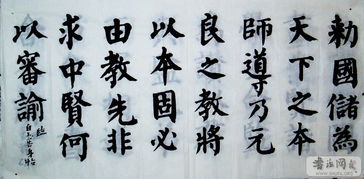 勅國儲為
天下之本
師導乃元
良之教將
以本固必
由教先非
求中賢何
以審諭
臨